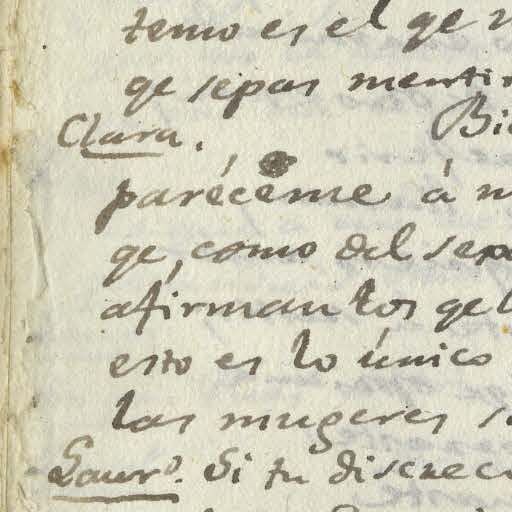 temo es el qe
qe sepas mentir
Clara. Bi
paréceme á m
qe, como del sex
afirman los qe l
esto es lo único
las mugeres s
Laurº. Si tu discrec